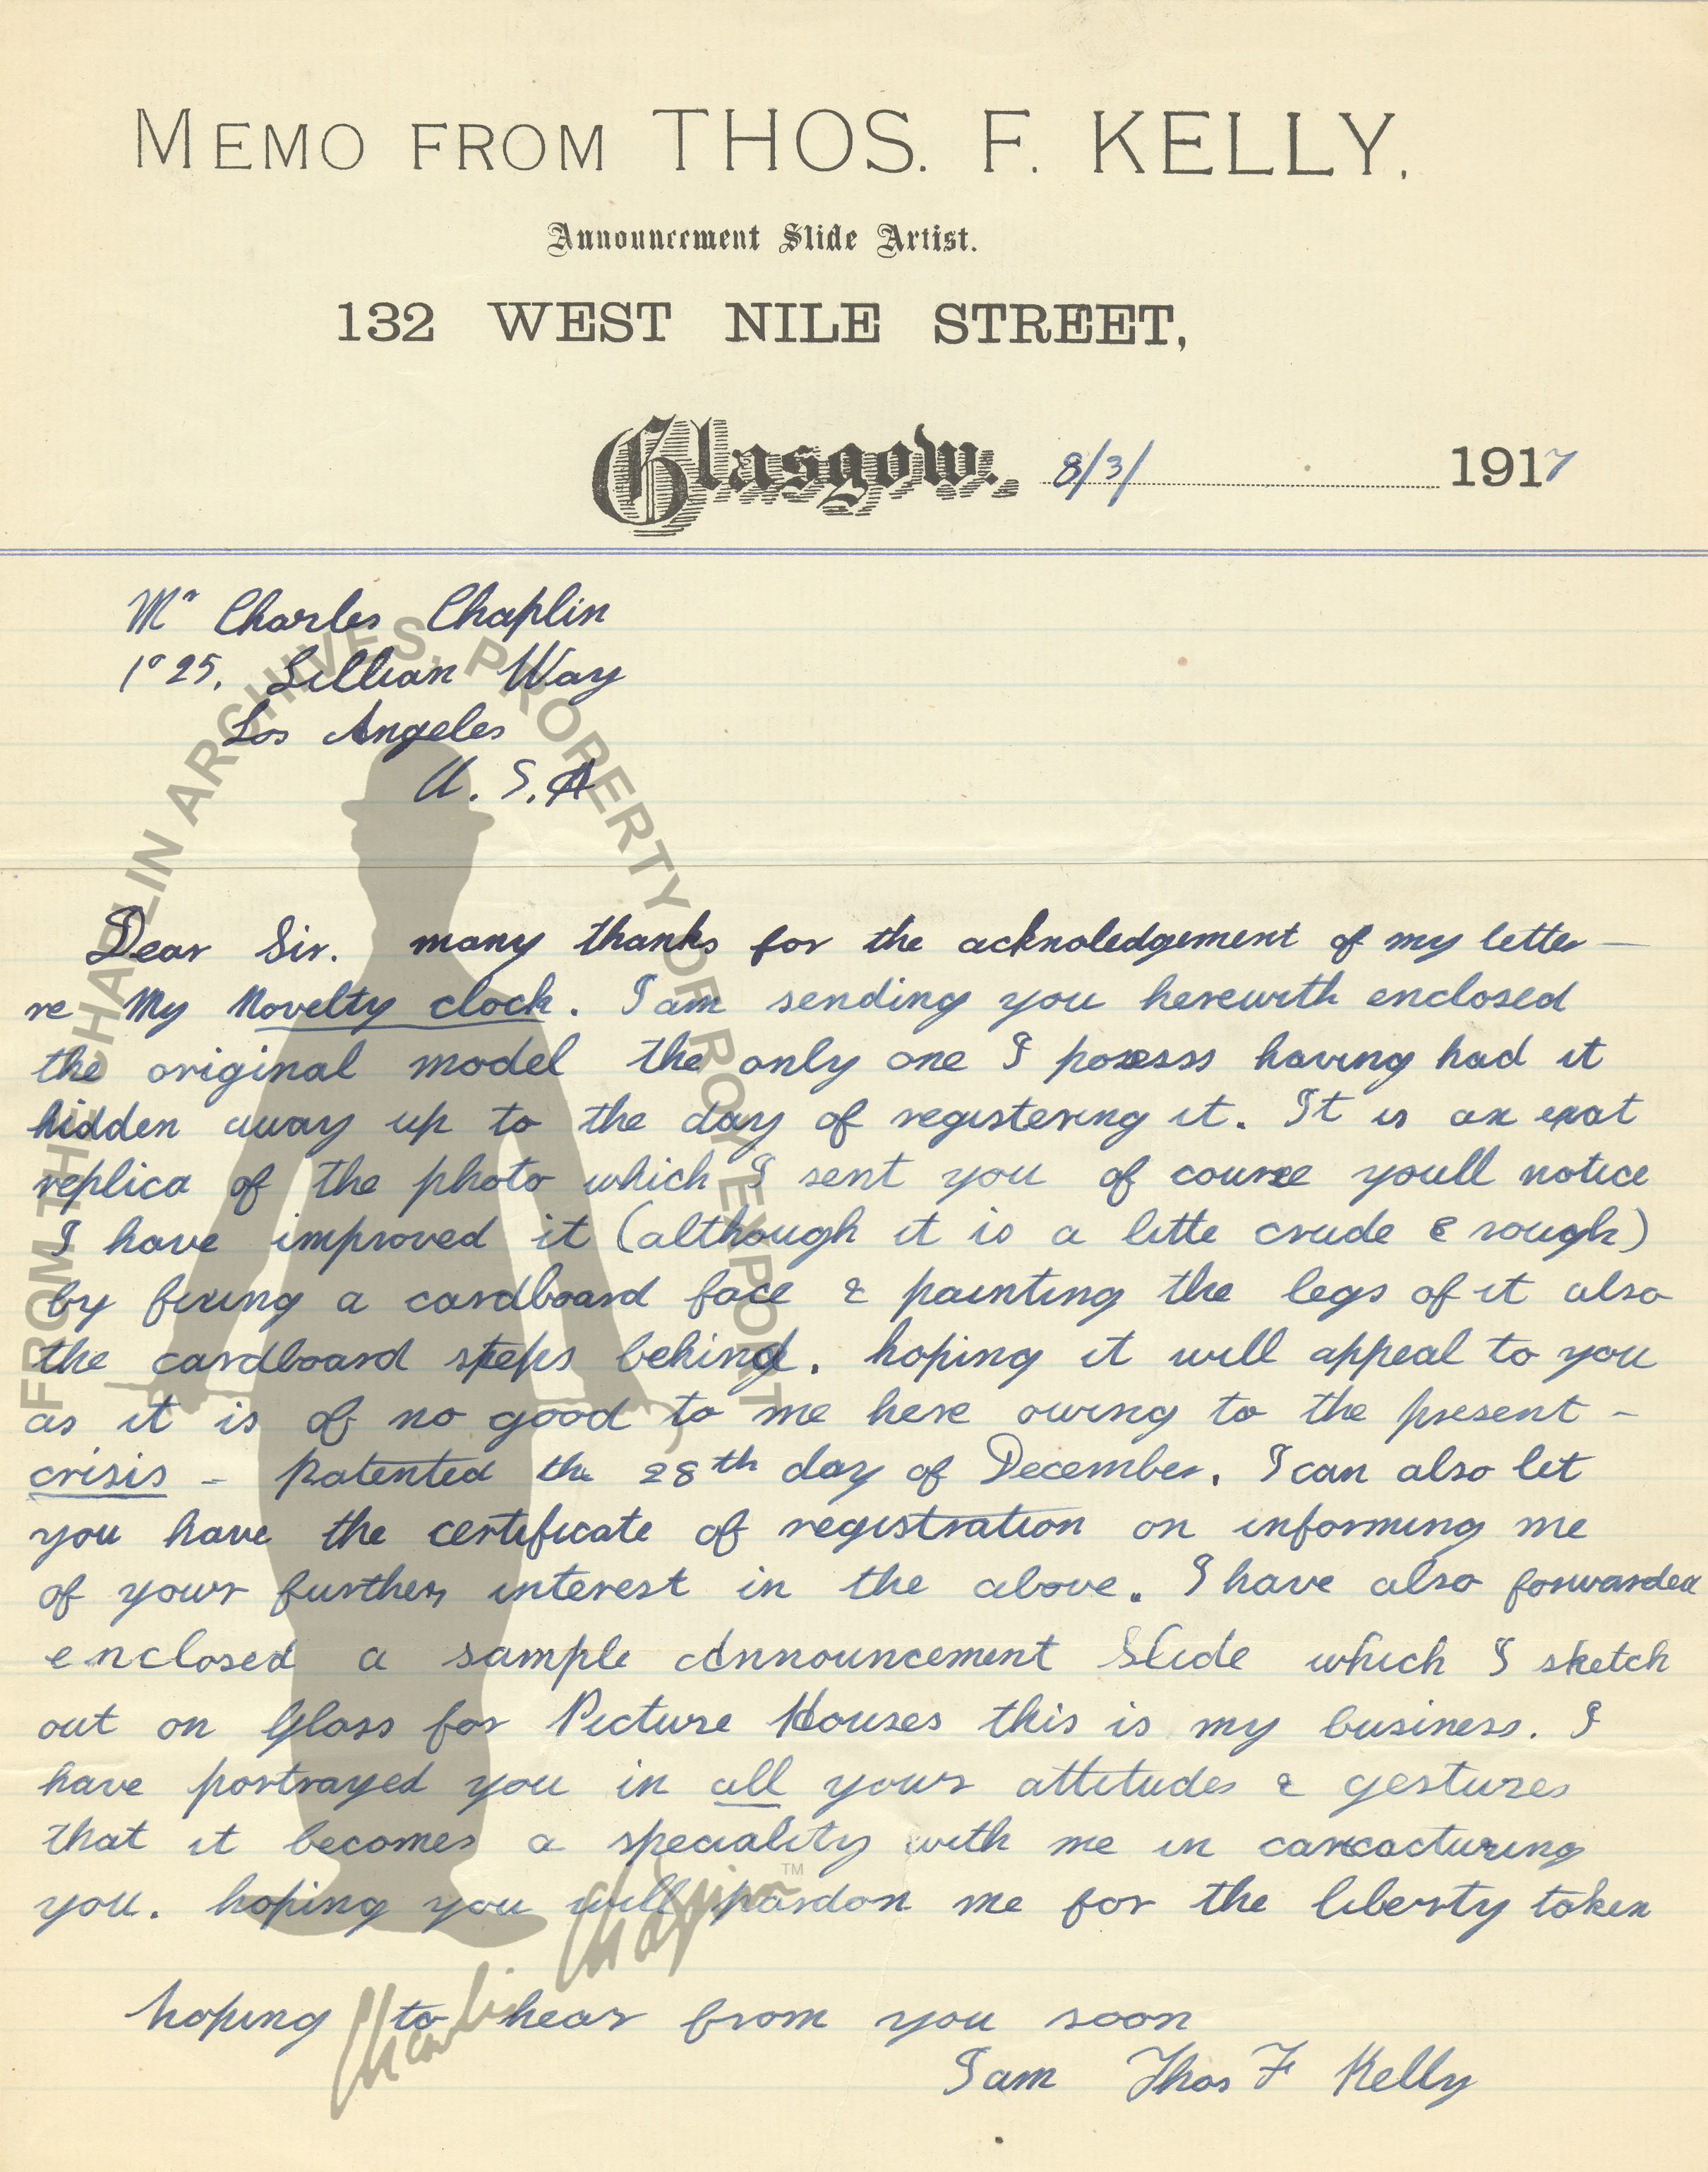 MEMO FROM THOS. F. KELLY.
Announcement Slide Artist.
132 WEST NILE STREET,
Glasgow. 8/3/ 1917
Mr Charles Chaplin
1025. Lillian Way
Los Angeles
U. S. A
Dear Sir. many thanks for the acknoledgement of my letter —
re My Novelty clock. I am sending you herewith enclosed
the original model the only one I posesss having had it
hidden away up to the day of registering it. It is an exat
replica of the photo which I sent you of course youll notice
I have improved it (although it is a litte crude & rough)
by fixing a cardboard face & painting the legs of it also
the cardboard steps behind. hoping it will appeal to you
as it is of no good to me here owing to the present –
crisis – patented the 28th day of December. I can also let
you have the certificate of registration on informing me
of your further interest in the above. I have also forwarded
enclosed a sample Announcement Slide which I sketch
out on Glass for Picture Houses this is my business. I
have portrayed you in all your attitudes & gestures
that it becomes a speciality with me in caricacturing
you. hoping you will pardon me for the liberty taken
hoping to hear from you soon
I am Thos F Kelly
FROM THE CHAPLIN ARCHIVES, PROPERTY OF ROY EXPORT
Charlie Chaplin TM